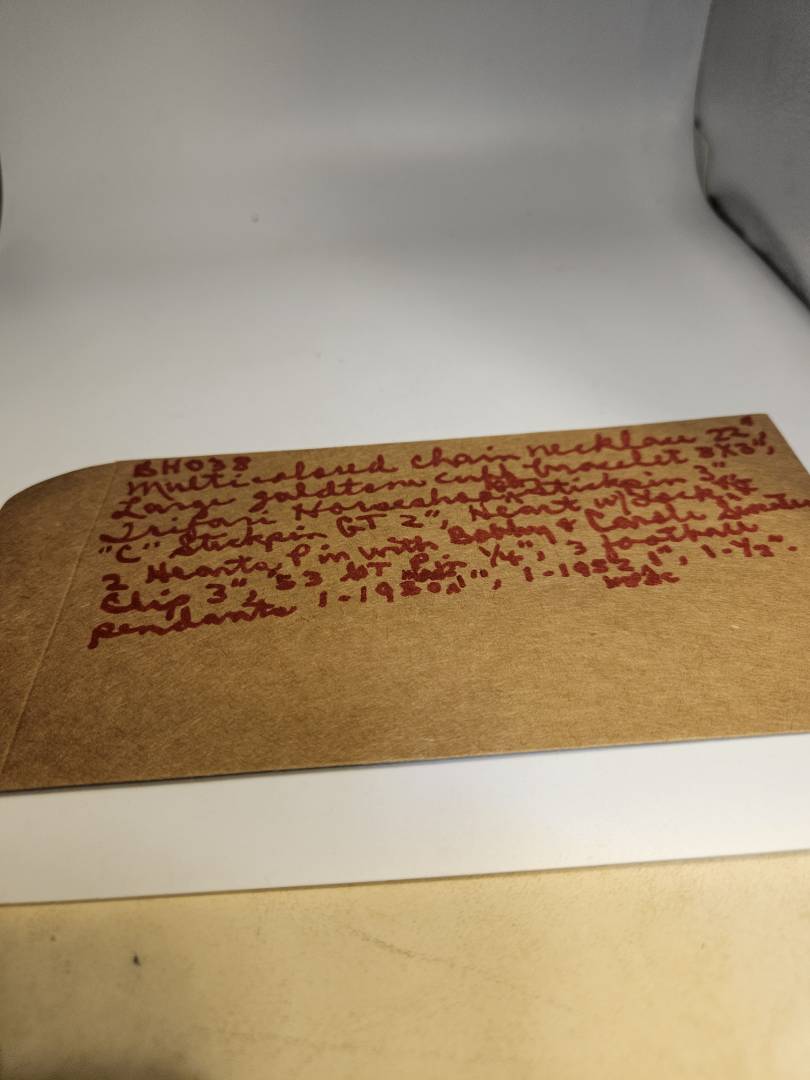 BH038
Multicolored chain necklace 22"
Large goldtone cuff bracelet 3X3",
Trifari Horseshoe Stickpin 3"
"C" Stickpin GT 2", Heart w/Lock
2 Hearts, Pin with Bobby & Carole
Clip 3", 53 GT Pin 1/4", 3 football
pendants 1-1950 1", 1-1952 1", 1-1/2".